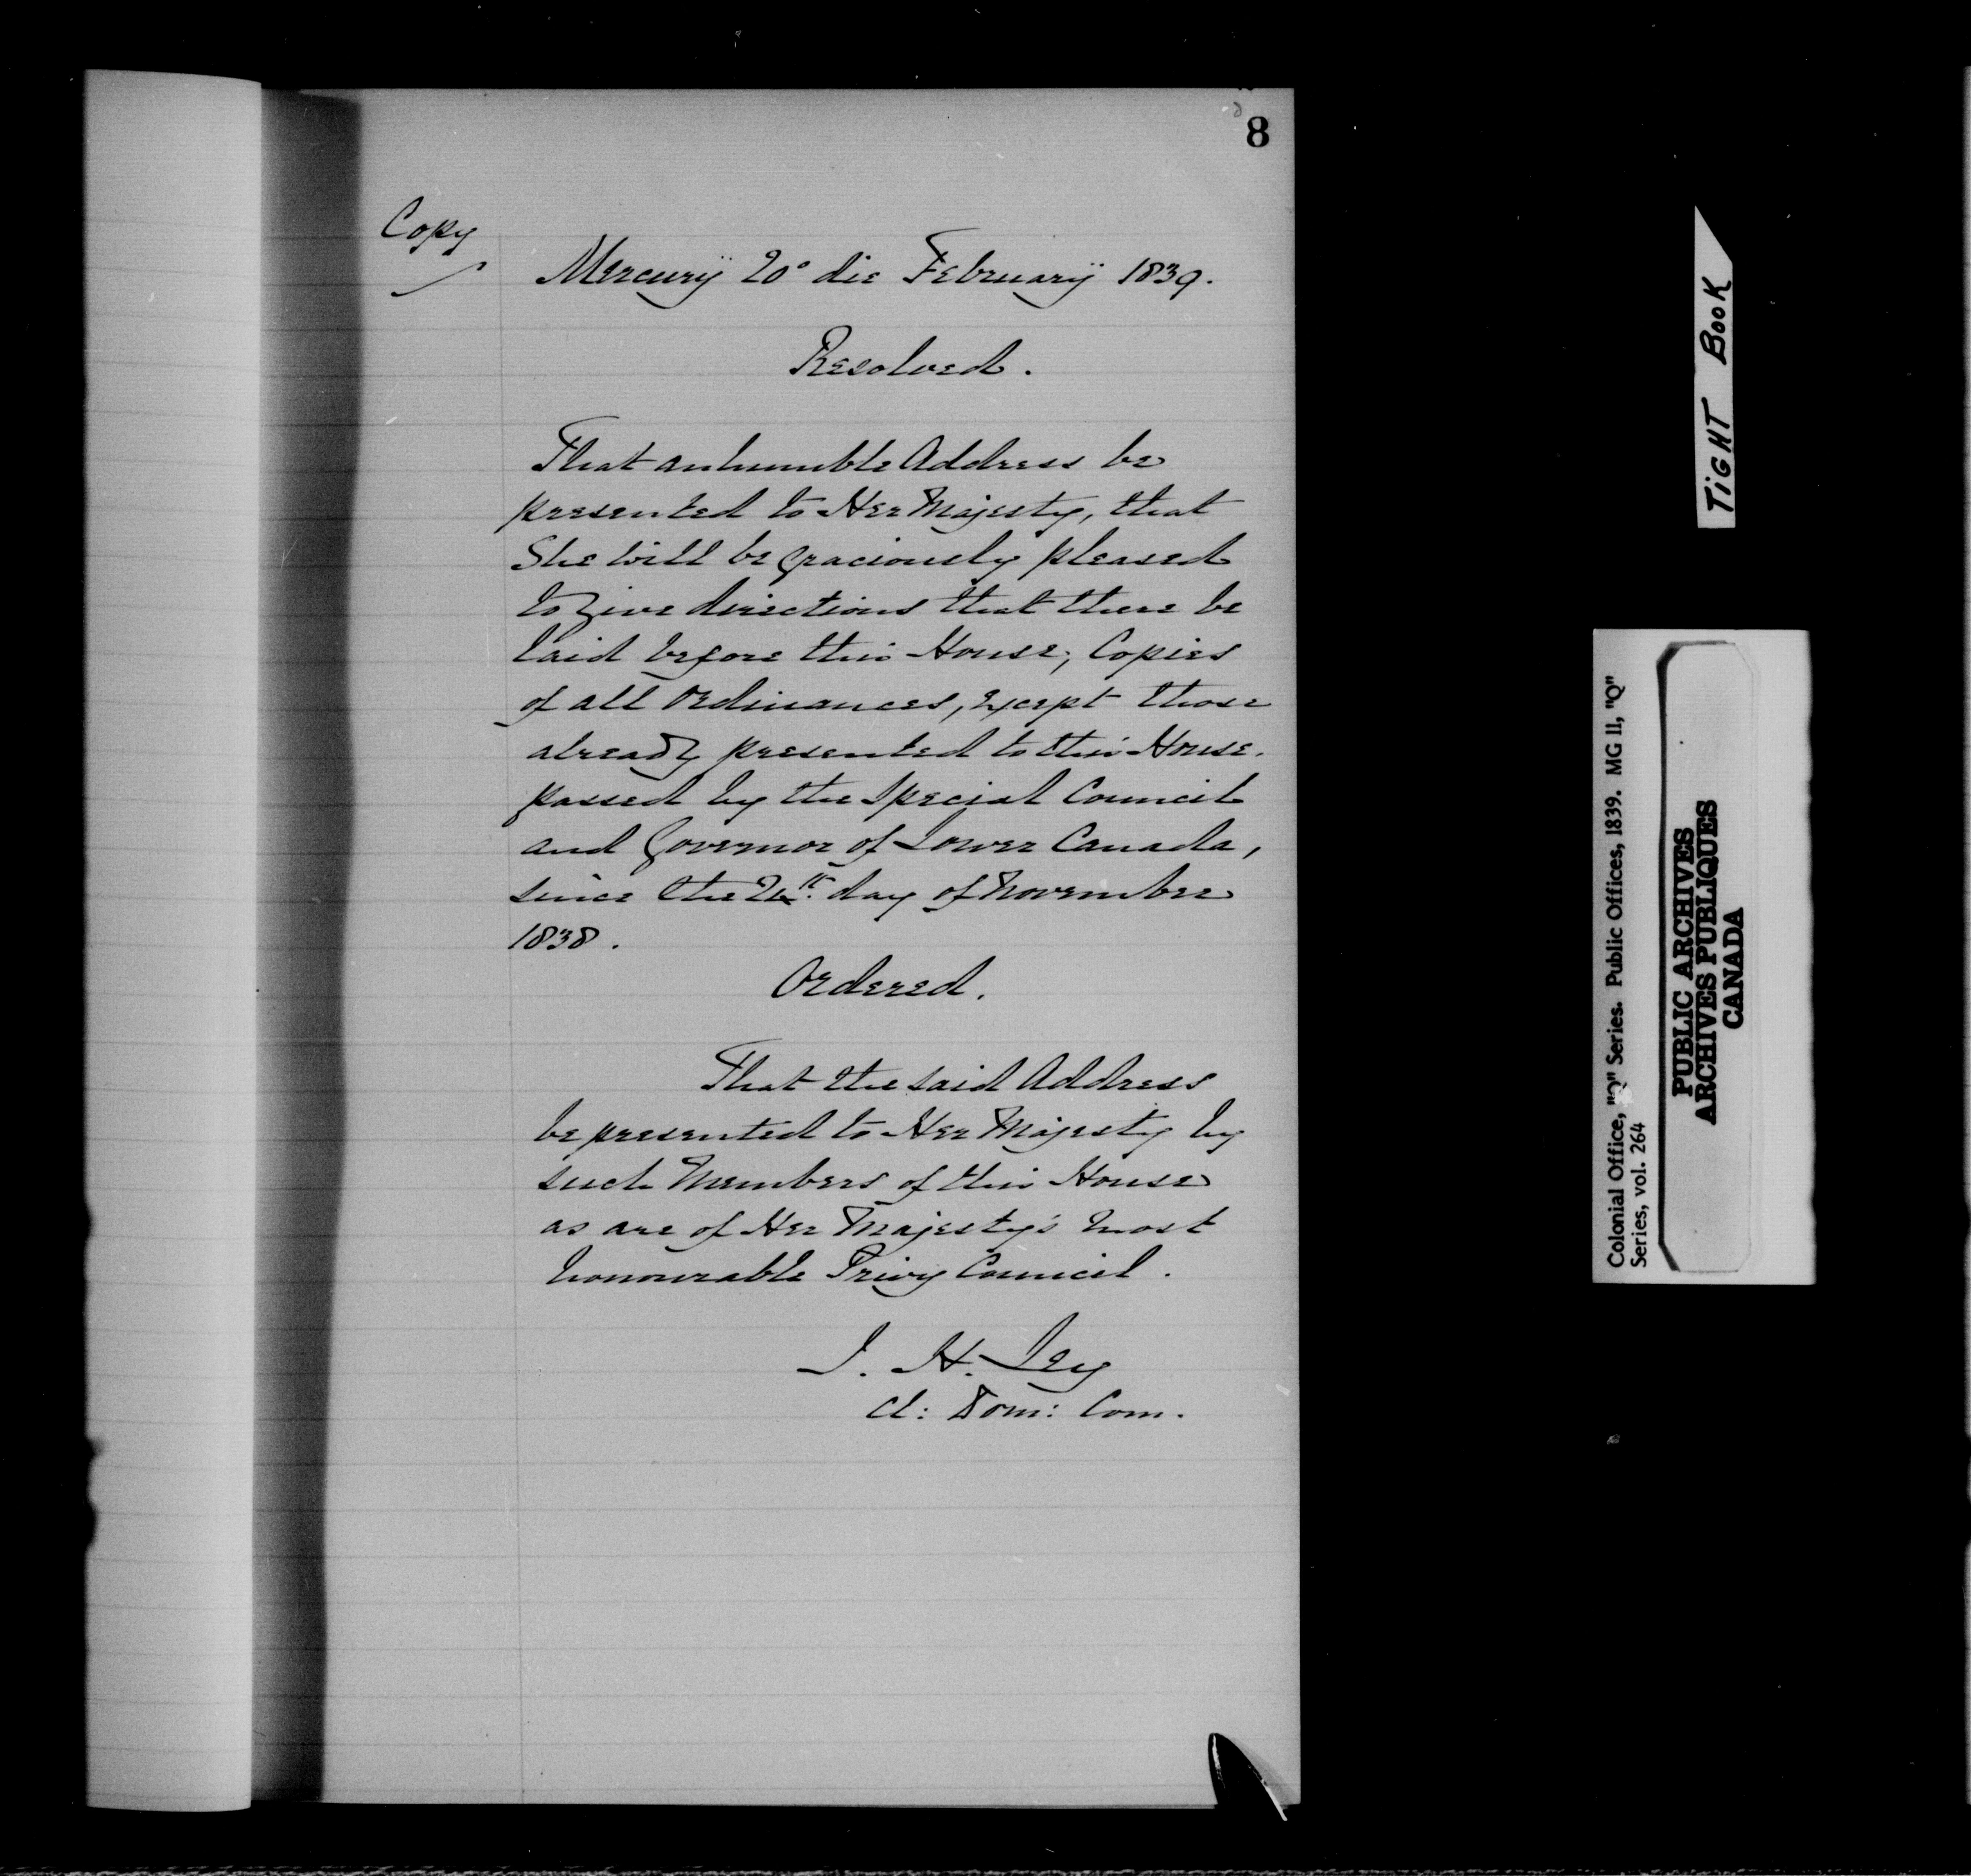 8
Copy
Mercurÿ 20° die Februarÿ 1839.
Resolved.
That an humble Address be
presented to Her Majesty, that
She will be graciously pleased
to give directions that there be
laid before this House, Copies
of all Ordinances, except those
already presented to this House.
passed by the Special Council
and Governor of Lower Canada,
since the day of November
1838.
Ordered.
That the said Address
be presented to Her Majesty by
such Members of this House
as are of Her Majesty's most
honourable Privy Council.
J. H. Ley
Cl: Dom: Com.
TiGHT BooK
Colonial Office, "Q" Series. Public Offices, 1839. MG 11, "Q"
Series, vol. 264
PUBLIC ARCHIVES
ARCHIVES PUBLIQUES
CANADA